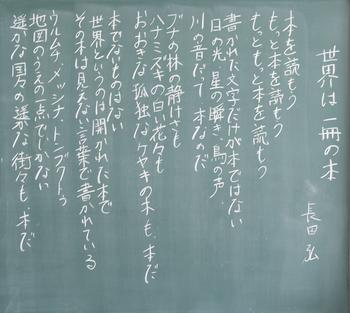 世界は一冊の本
長田弘
本を読もう
もっと本を読もう
もっともっと本を読もう
書かれた文字だけが本ではない
日の光、星の瞬き、鳥の声
川の音だって本なのだ
ブナの林の静けさも
ハナミズキの白い花々も
おおきな孤独なケヤキの木も、本だ
本でないものはない
世界というのは開かれた本で
その本は見えない言葉で書かれている
ウルムチ、メッシナ、トンブクトゥ
地図のうえの一点でしかない
遥かな国々の遥かな街々も、本だ